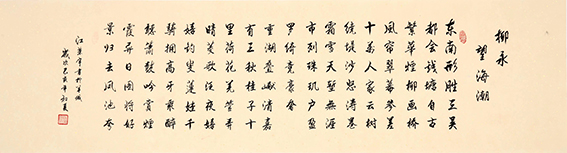 柳永
望海潮
东南形勝三吴
都會钱塘自古
繁華烟柳画橋
風帘翠幕参差
十萬人家云树
绕堤沙怒涛卷
霜雪天堑無涯
市列珠玑户盈
罗绮竞豪奢
重湖叠巘清嘉
有三秋桂子十
里荷花羌管弄
晴菱歌泛夜嬉
嬉钓叟莲娃千
骑擁高牙乘醉
聽箫鼓吟赏煙
霞異日图将好
景归去凤池夸
江 書於羊城
歲次己亥年初夏